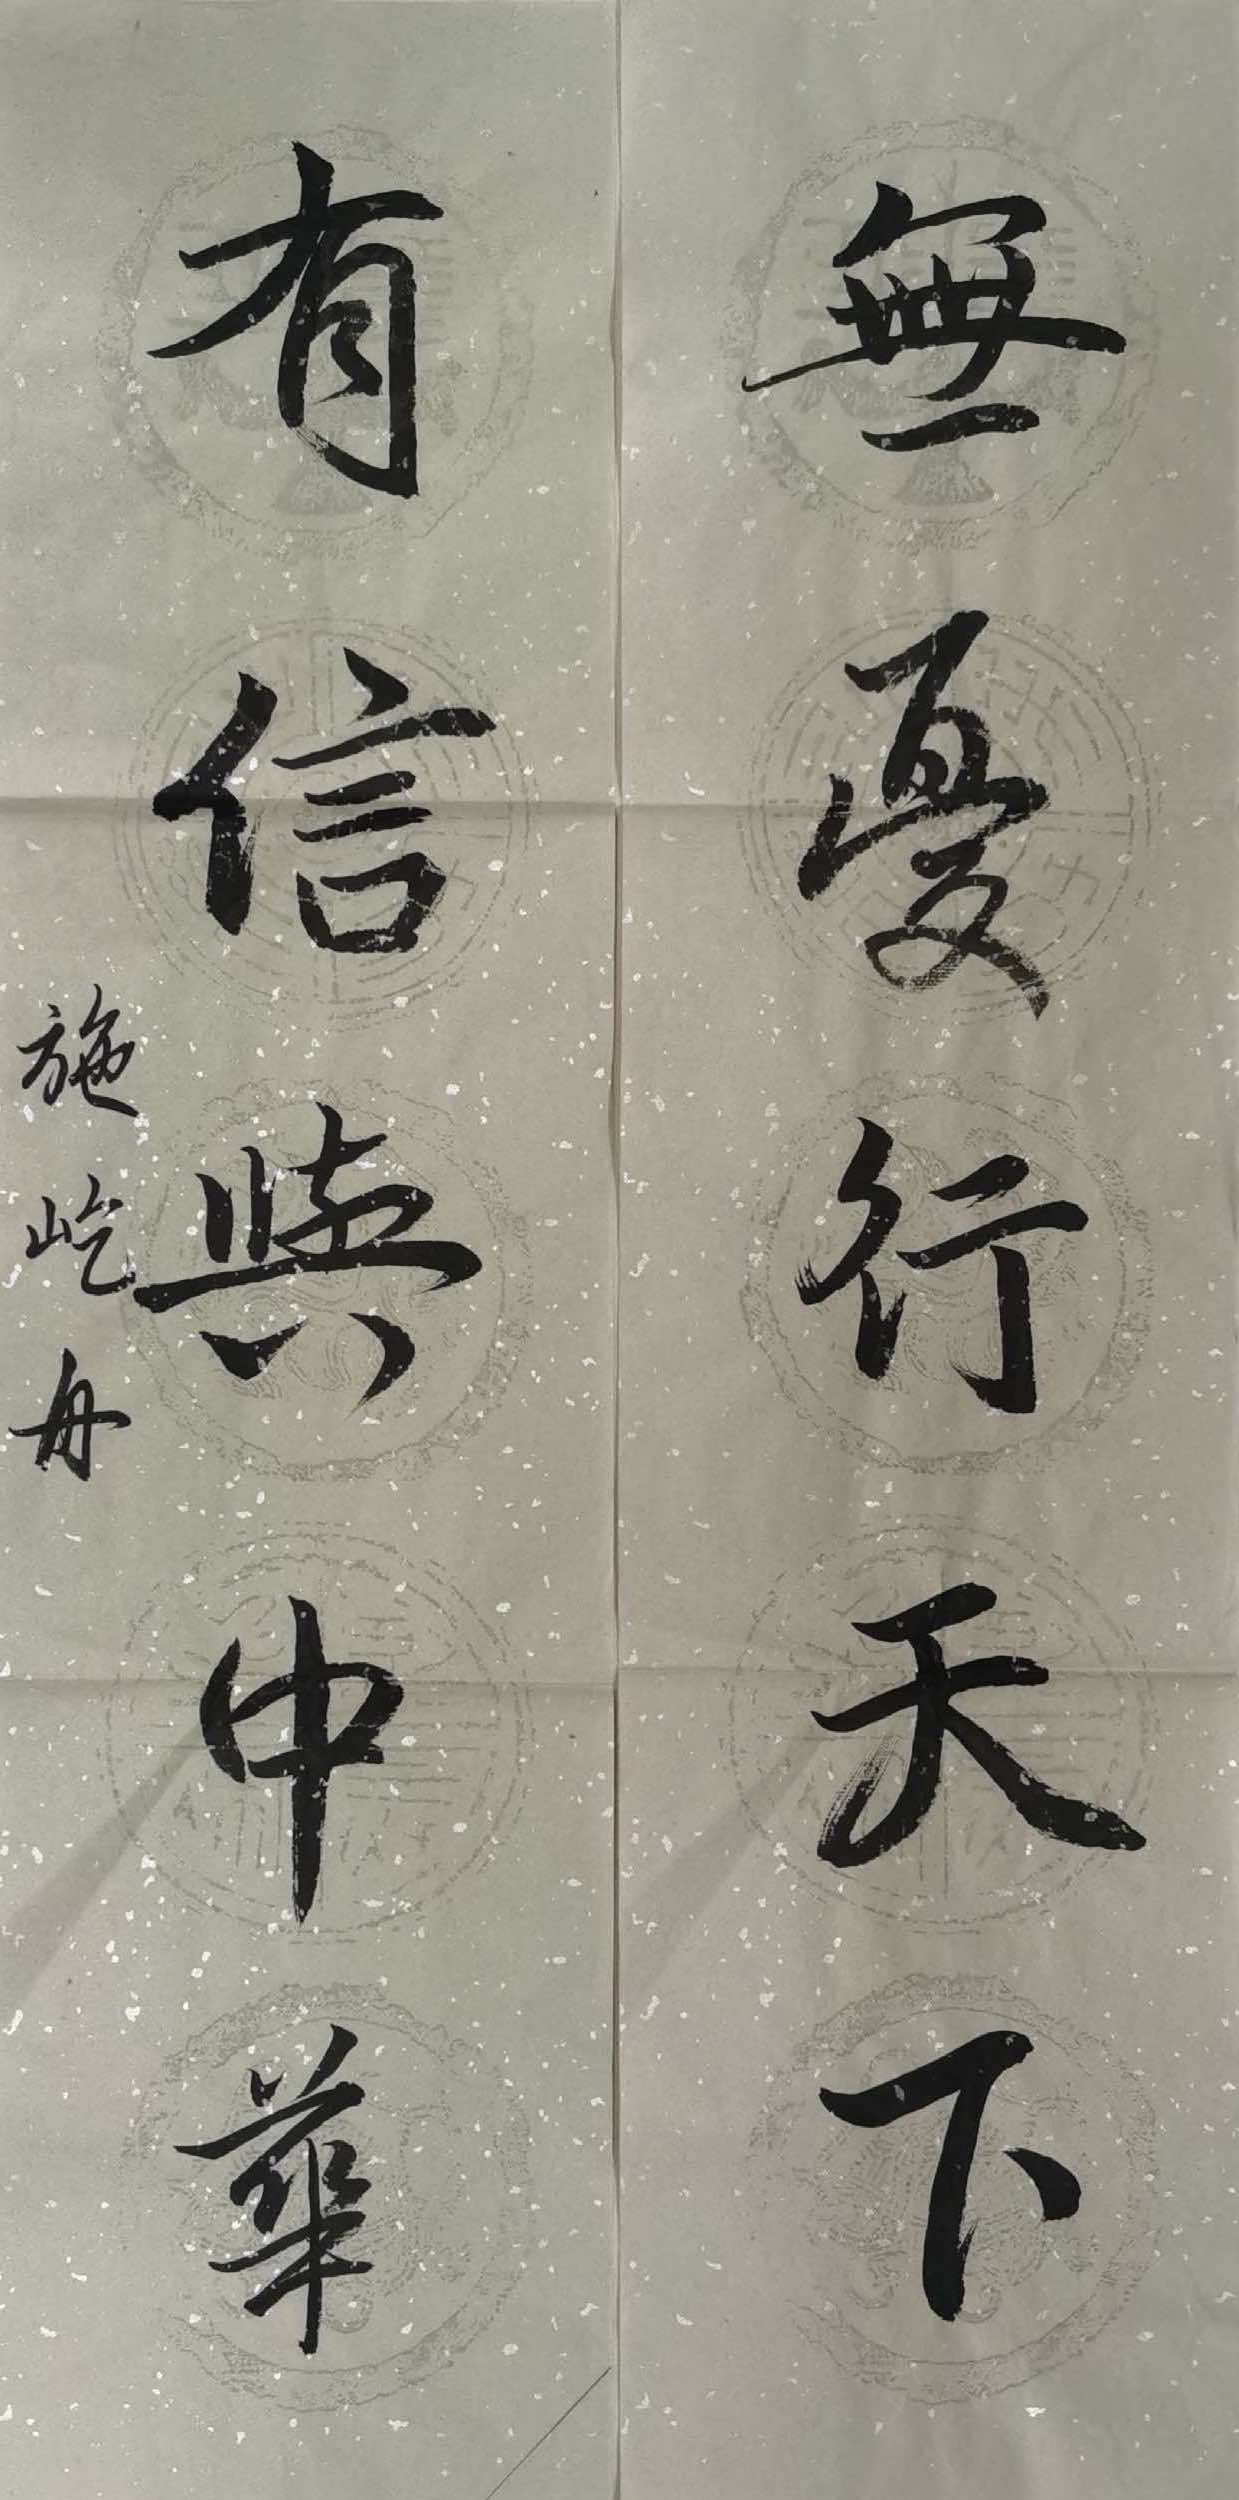 無憂行天下
有信興中華
施屹舟